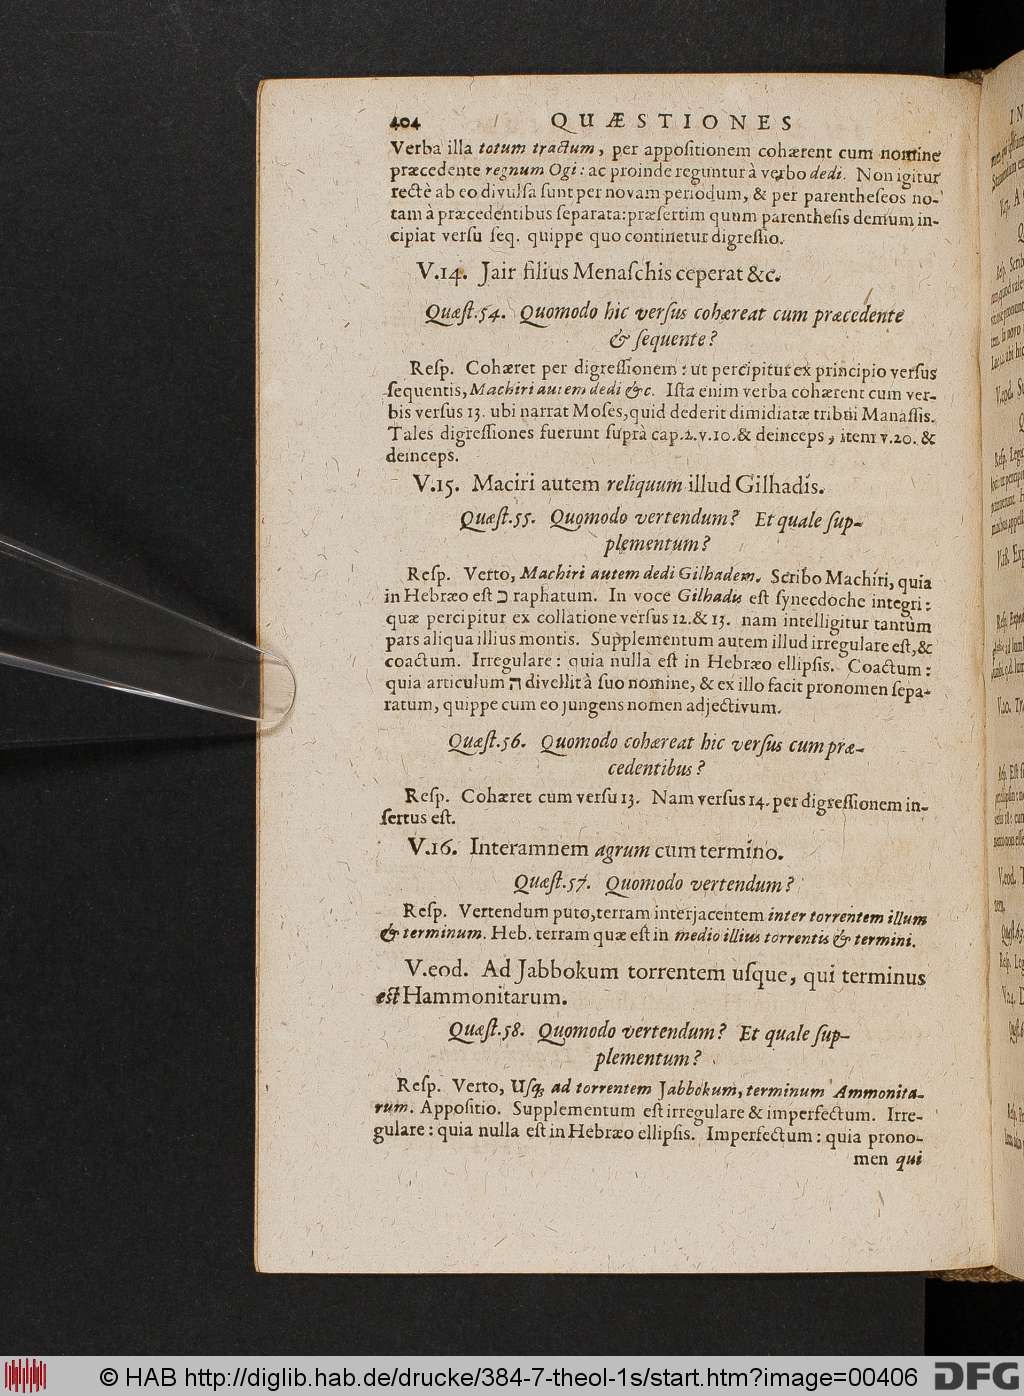 404 QUÆSTIONES
Verba illa totum tractum, per appositionem cohærent cum nomine
præcedente regnum Ogi: ac proinde reguntur à verbo dedi. Non igitur
rectè ab eo divulsa sunt per novam periodum, & per parentheseos no-
tam à præcedentibus separata: præsertim quum parenthesis demum in-
cipiat versu seq. quippe quo continetur digressio.
V.14. Jair filius Menaschis ceperat &c.
Quæst.54. Quomodo hic versus cohæreat cum præcedente
& sequente?
Resp. Cohæret per digressionem: ut percipitur ex principio versus
sequentis, Machiri autem dedi &c. Ista enim verba cohærent cum ver-
bis versus 13. ubi narrat Moses, quid dederit dimidiatæ tribui Manassis.
Tales digressiones fuerunt suprà cap.2.v.10.& deinceps, item v.20. &
deinceps.
V.15. Maciri autem reliquum illud Gilhadis.
Quæst.55. Quomodo vertendum? Et quale sup-
plementum?
Resp. Verto, Machiri autem dedi Gilhadem. Scribo Machiri, quia
in Hebræo est כ raphatum. In voce Gilhadis est synecdoche integri:
quæ percipitur ex collatione versus 12.& 13. nam intelligitur tantùm
pars aliqua illius montis. Supplementum autem illud irregulare est, &
coactum. Irregulare: quia nulla est in Hebræo ellipsis. Coactum:
quia articulum ה divellit à suo nomine, & ex illo facit pronomen sepa-
ratum, quippe cum eo jungens nomen adjectivum.
Quæst.56. Quomodo cohæreat hic versus cum præ-
cedentibus?
Resp. Cohæret cum versu 13. Nam versus 14. per digressionem in-
sertus est.
V.16. Interamnem agrum cum termino.
Quæst.57. Quomodo vertendum?
Resp. Vertendum puto, terram interjacentem inter torrentem illum
& terminum. Heb. terram quæ est in medio illius torrentis & termini.
V.eod. Ad Jabbokum torrentem usque, qui terminus
est Hammonitarum.
Quæst.58. Quomodo vertendum? Et quale sup-
plementum?
Resp. Verto, Usq; ad torrentem Jabbokum, terminum Ammonita-
rum. Appositio. Supplementum est irregulare & imperfectum. Irre-
gulare: quia nulla est in Hebræo ellipsis. Imperfectum: quia prono-
men qui
© HAB http://diglib.hab.de/drucke/384-7-theol-1s/start.htm?image=00406
DFG